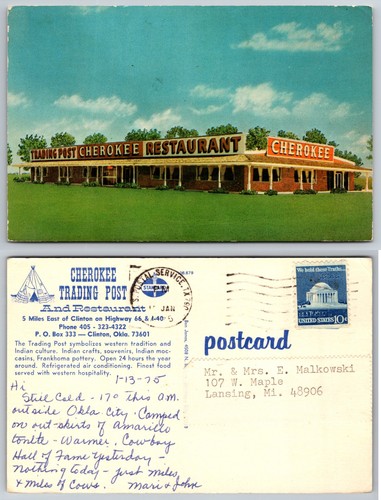 TRADING POST CHEROKEE RESTAURANT
CHEROKEE
CHEROKEE
TRADING POST
And Restaurant
5 Miles East of Clinton on Highway 66 & I-40
Phone 405 - 323-4322
P. O. Box 333 — Clinton, Okla. 73601
The Trading Post symbolizes western tradition and
Indian culture. Indian crafts, souvenirs, Indian moc-
casins, Frankhoma pottery. Open 24 hours the year
around. Refrigerated air conditioning. Finest food
served with western hospitality.
1-13-75
Hi
Still Cold - 17° this A.M.
outside Okla City. Camped
on out-skirts of Amarillo
tonite - Warmer. Cowboy
Hall of Fame yesterday -
nothing today - just miles,
& miles of cows. Mari & John
POSTAL SERVICE, TX
PM
JAN
We hold these Truths...
UNITED STATES 10c
postcard
Mr. & Mrs. E. Malkowski
107 W. Maple
Lansing, Mi. 48906